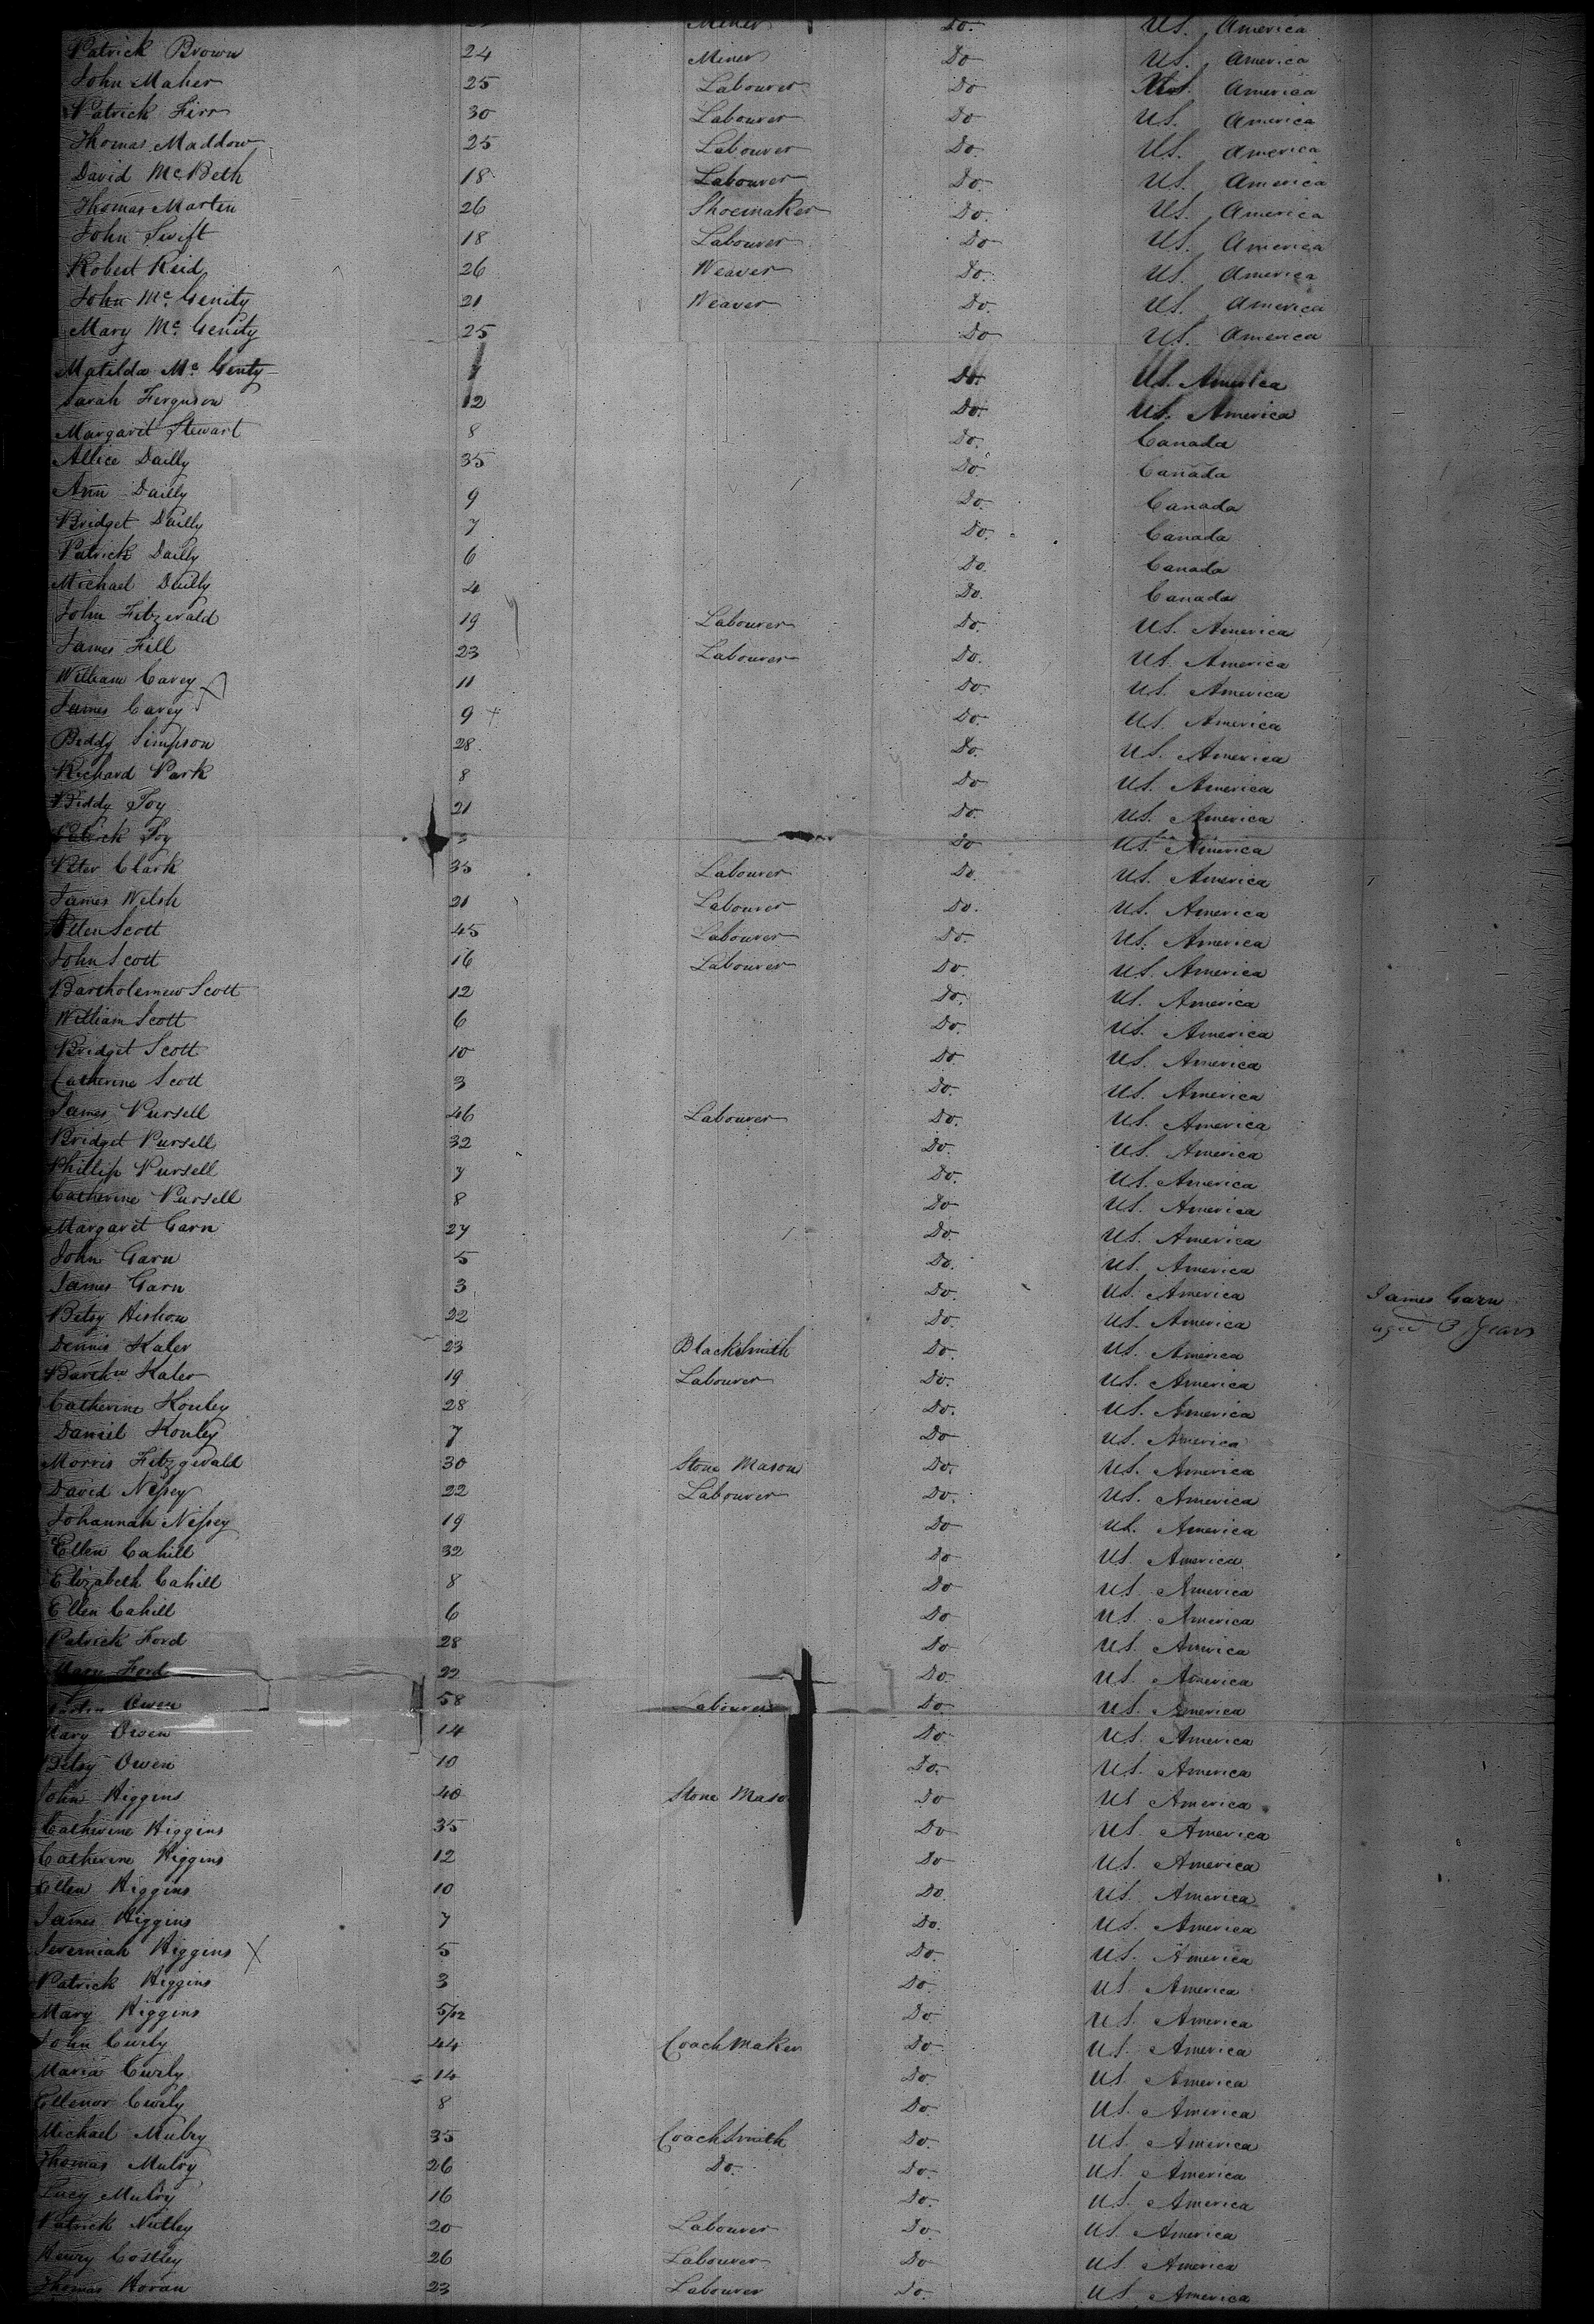 Miner Do. US. America
Patrick Brown 24 Miner Do US. America
John Maher 25 Labourer Do US. America
Patrick Firr 30 Labourer Do US. America
Thomas Maddow 25 Labourer Do. US. America
David McBeth 18 Labourer Do. US. America
Thomas Marten 26 Shoemaker Do. US. America
John Swift 18 Labourer Do US. America
Robert Reid 26 Weaver Do. US. America
John Mc Genity 21 Weaver Do. US. America
Mary Mc Genity 25 Do US. America
Matilda Mc Genty Do. US. America
Sarah Ferguson 12 Do. US. America
Margaret Stewart 8 Do. Canada
Allice Dailly 35 Do Canada
Ann Dailly 9 Do. Canada
Bridget Dailly 7 Do. Canada
Patrick Dailly 6 Do. Canada
Michael Dailly 4 Do. Canada
John Fitzerald 19 Labourer Do. US. America
James Fill 23 Labourer Do. US. America
William Carey 11 Do. US. America
James Carey 9 + Do. US. America
Biddy Simpson 28. Do. US. America
Richard Park 8 Do US. America
Biddy Foy 21 Do. US. America
Patrick Foy Do US. America
Peter Clark 35 Labourer Do. US. America
James Welsh 21 Labourer Do. US. America
Allen Scott 45 Labourer Do. US. America
John Scott 16 Labourer Do. US. America
Bartholemew Scott 12 Do. US. America
William Scott 6 Do. US. America
Bridget Scott 10 Do. US. America
Catherine Scott 3 Do. US. America
James Pursell 46 Labourer Do. US. America
Bridget Pursell 32 Do. US. America
Phillip Pursell 7 Do. US. America
Catherine Pursell 8 Do US. America
Margaret Garn 27 Do. US. America
John Garn 5 Do. US. America
James Garn 3 Do. US. America James Garn
Betsy Hishon 22 Do. US. America aged 3 Years
Dennis Kaler 23 Blacksmith Do. US. America
Barthw Kaler 19 Labourer Do. US. America
Catherine Konley 28 Do. US. America
Daniel Konley 7 Do US. America
Morris Fitzgerald 30 Stone Mason Do. US. America
David Nessey 22 Labourer Do. US. America
Johannah Nessey 19 Do US. America
Ellen Cahill 32 Do US. America
Elizabeth Cahill 8 Do US. America
Ellen Cahill 6 Do US. America
Patrick Ford 28 Do US. America
Mary Ford 22 Do US. America
Owen 58 Labourer Do US. America
Mary Owen 14 Do. US. America
Betsy Owen 10 Do. US. America
John Higgins 40 Stone Maso Do US America
Catherine Higgins 35 Do US. America
Catherine Higgins 12 Do US. America
Ellen Higgins 10 Do. US. America
James Higgins 7 Do. US. America
Jeremiah Higgins X 5 Do. US. America
Patrick Higgins 3 Do. US. America
Mary Higgins 5/12 Do. US. America
John Curly 44 Coach Maker Do. US. America
Maria Curly 14 Do. US. America
Ellenor Curly 8 Do. US. America
Michael Mulry 35 Coachsmith Do. US. America
Thomas Mulry 26 Do. Do. US. America
Lucy Mulry 16 Do. US. America
Patrick Nutley 20 Labourer Do. US. America
Henry Costley 26 Labourer Do US. America
Thomas Horan 23 Labourer Do. US. America